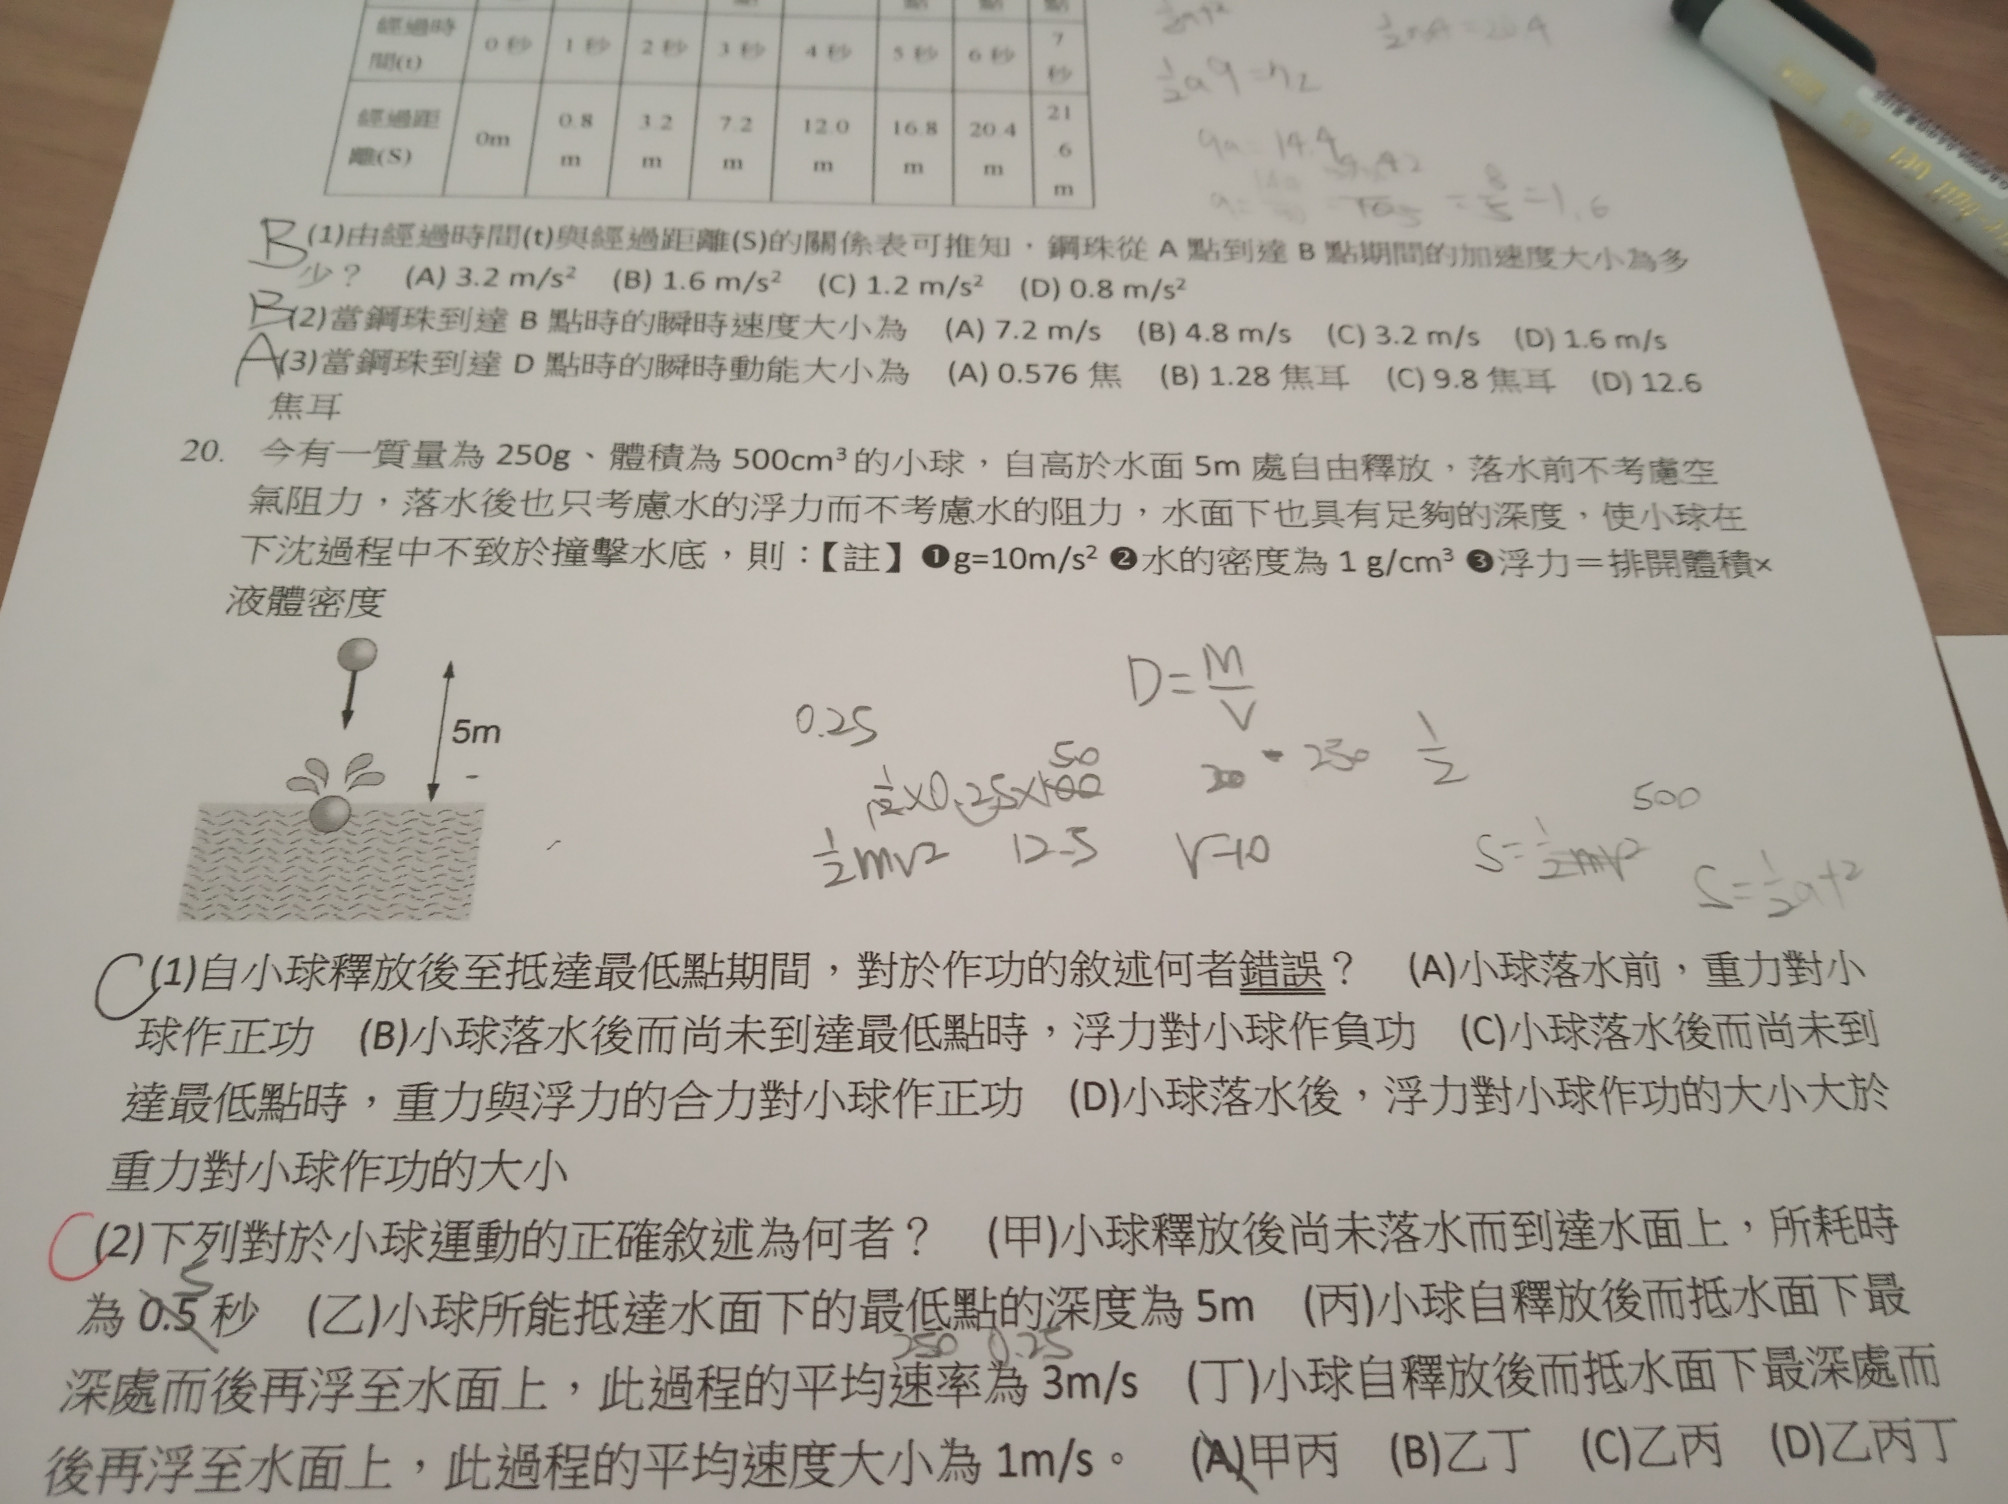 ½at²
½a4=20.4
經過時間(t) 0秒 1秒 2秒 3秒 4秒 5秒 6秒 7秒
½a9=7.2
經過距離(S) 0m 0.8m 3.2m 7.2m 12.0m 16.8m 20.4m 21.6m
9a=14.4
=8/5=1.6
B(1)由經過時間(t)與經過距離(S)的關係表可推知，鋼珠從 A 點到達 B 點期間的加速度大小為多
少？ (A) 3.2 m/s² (B) 1.6 m/s² (C) 1.2 m/s² (D) 0.8 m/s²
B(2)當鋼珠到達 B 點時的瞬時速度大小為 (A) 7.2 m/s (B) 4.8 m/s (C) 3.2 m/s (D) 1.6 m/s
A(3)當鋼珠到達 D 點時的瞬時動能大小為 (A) 0.576 焦 (B) 1.28 焦耳 (C) 9.8 焦耳 (D) 12.6
焦耳
20. 今有一質量為 250g、體積為 500cm³ 的小球，自高於水面 5m 處自由釋放，落水前不考慮空
氣阻力，落水後也只考慮水的浮力而不考慮水的阻力，水面下也具有足夠的深度，使小球在
下沈過程中不致於撞擊水底，則：【註】❶g=10m/s² ❷水的密度為 1 g/cm³ ❸浮力＝排開體積×
液體密度
D=M/V
0.25
5m
50
250 ½
½×0.25×100
500
½mv² 12.5 V=10
S=½mv²
S=½at²
C(1)自小球釋放後至抵達最低點期間，對於作功的敘述何者錯誤？ (A)小球落水前，重力對小
球作正功 (B)小球落水後而尚未到達最低點時，浮力對小球作負功 (C)小球落水後而尚未到
達最低點時，重力與浮力的合力對小球作正功 (D)小球落水後，浮力對小球作功的大小大於
重力對小球作功的大小
C(2)下列對於小球運動的正確敘述為何者？ (甲)小球釋放後尚未落水而到達水面上，所耗時
為 0.5 秒 (乙)小球所能抵達水面下的最低點的深度為 5m (丙)小球自釋放後而抵水面下最
250 0.25
深處而後再浮至水面上，此過程的平均速率為 3m/s (丁)小球自釋放後而抵水面下最深處而
後再浮至水面上，此過程的平均速度大小為 1m/s。 (A)甲丙 (B)乙丁 (C)乙丙 (D)乙丙丁